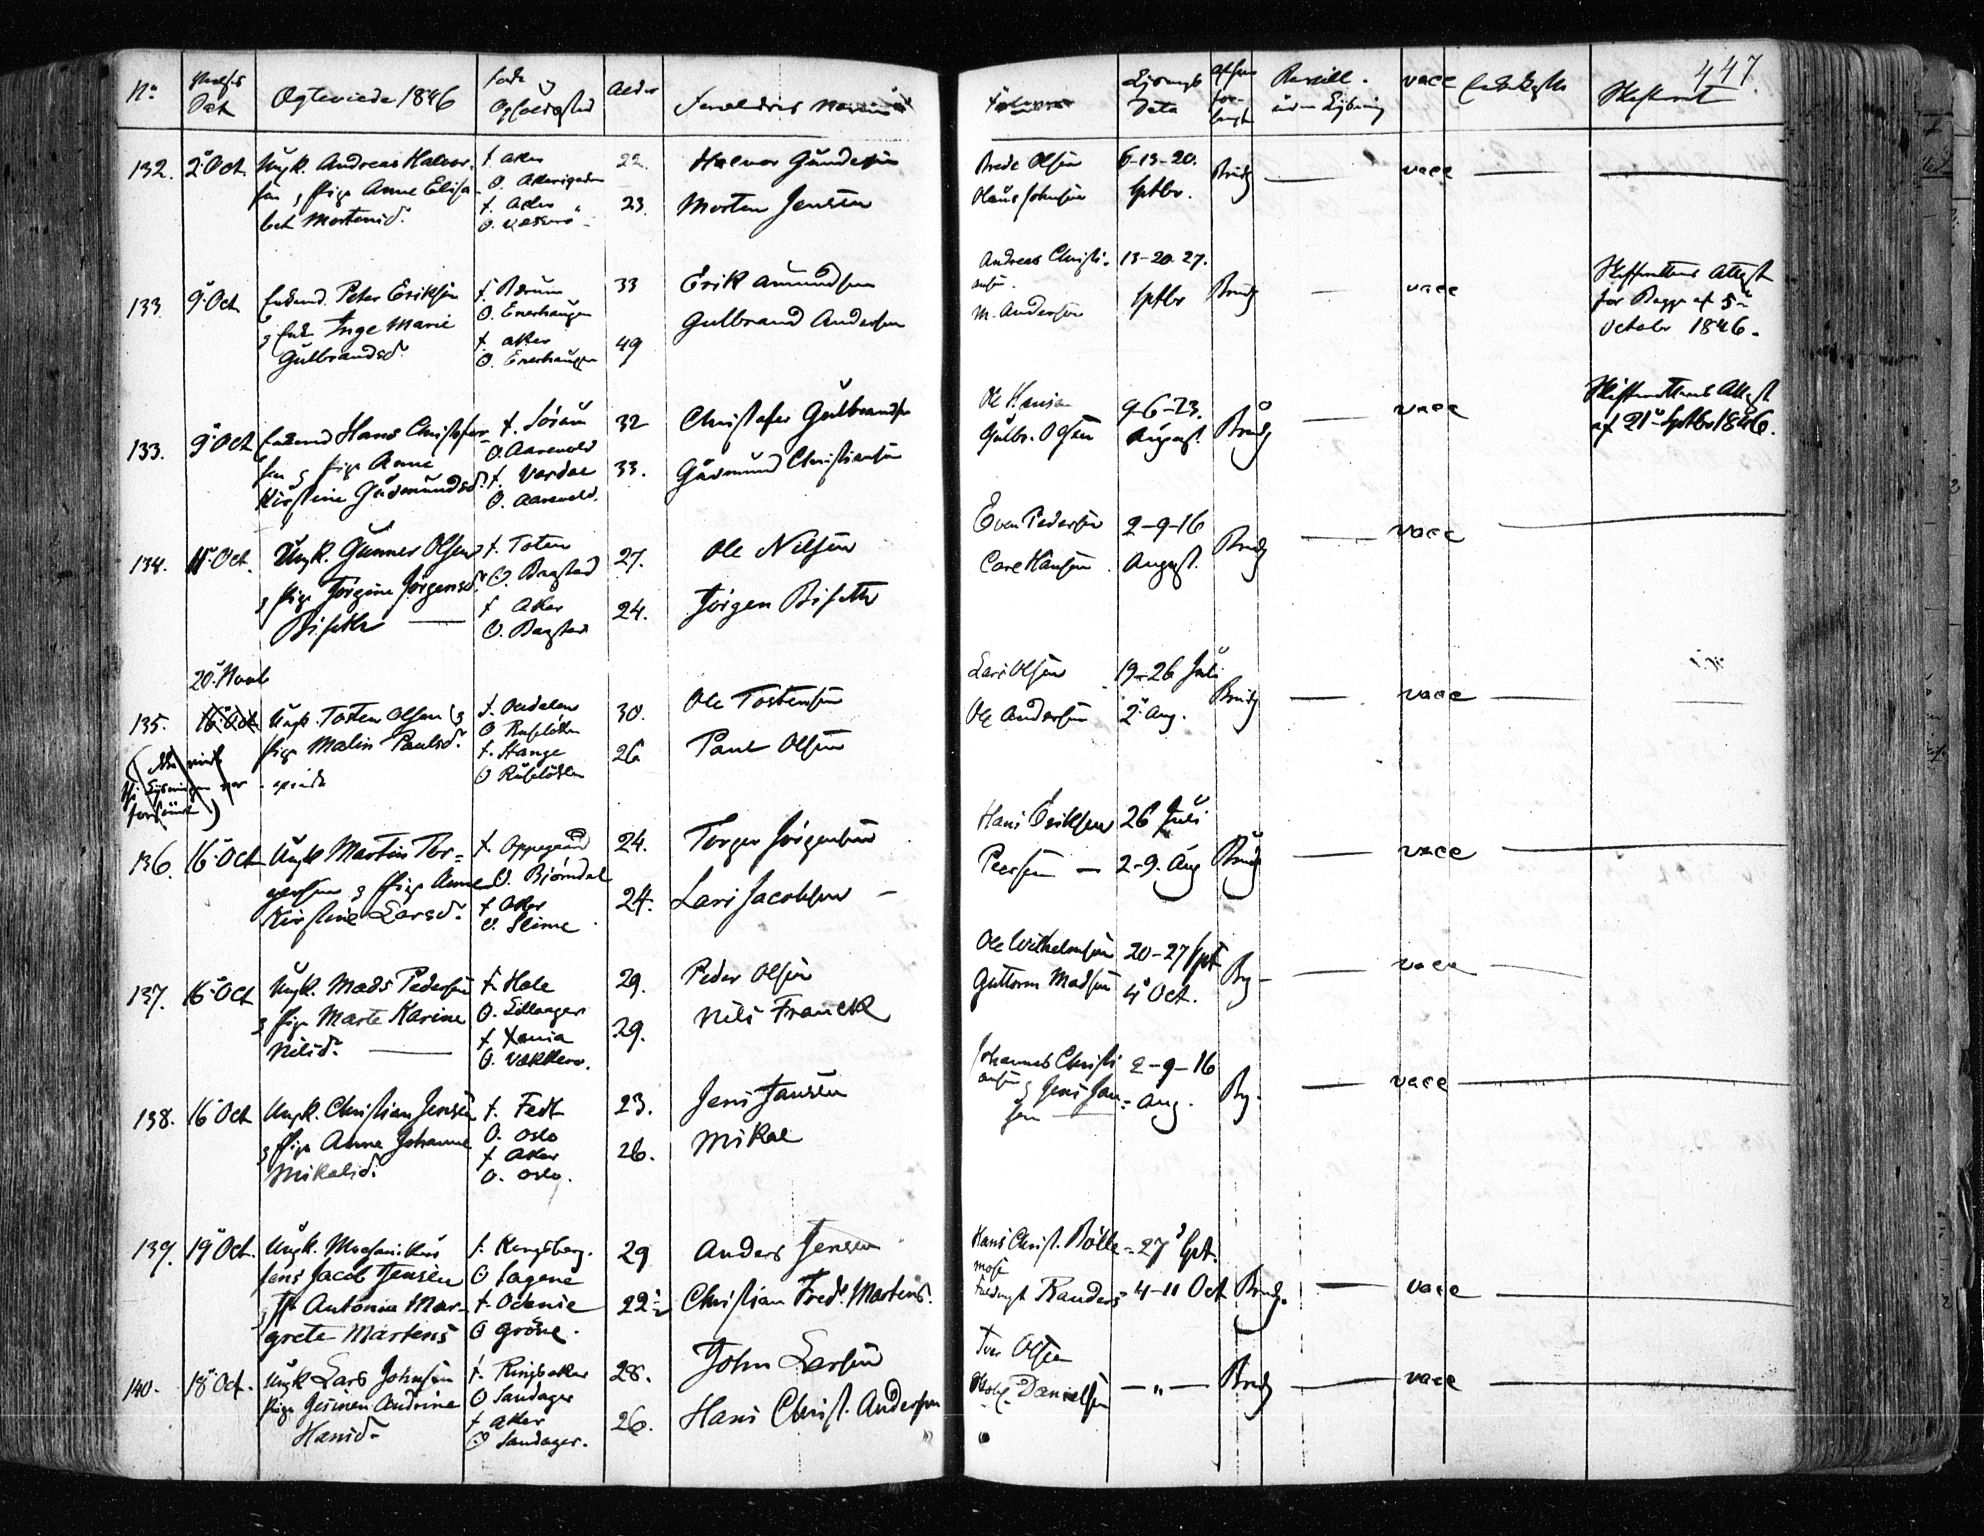 447.
No
Dat
Ægteviede 1846
Føde og
Opholdssted
Alder
Forældres
Forlovere
Lysnings
Data
vacc
132. 2 Oct Ungk. Andreas Halvor-
sen & Pige Anne Elisa-
bet Mortensd.
f. Aker
O.
f. Aker
O.
22.
23.
Halvor Gundersen
Morten Jensen
Brede Olsen
Olaus Johnsen
6-13-20.
Septbr.
Brudg
vacc
133 9 Oct Enkemd. Peter Eriksen
& Enk. Inge Marie
Gulbrandsd.
f. Bærum
O. Enerhaugen
f. Aker
O. Enerhaugen
33
49
Erik Amundsen
Gulbrand Andersen
Andreas Christi-
ansen.
M. Andersen
13-20-27.
Septbr
Brudg
vacc
Skifterettens Attest
for Begge af 5
October 1846.
133. 9 Oct Enkemd Hans Christofer-
sen & Pige Anne
Kirstine Gudmundsd.
f. Sørum
O. Aarevold
f. Vardal
O. Aarevold.
32
33.
Christofer Gulbrands
Gudmund Christiansen
Ole Hansen
Gulbr. Olsen
9-6-23.
August
Brudg
vacc
Skifterettens Attest
af 21 Septbr 1846.
134. Oct. Ungk. Gunner Olsen
& Pige Jørgine Jørgensd.
Biseth
f. Toten
O. Bagstad
f. Aker
O. Bagstad
27.
24.
Ole Nilsen
Jørgen Biseth
Even Pedersen
Carl Hansen
2-9-16
August.
Brudg
vacc
20. Novb
135. 16 Oct Ungk. Tosten Olsen &
Pige Malin Paulsd.
f. Oudalen
O. Rusløkken
f. Stange
O Rusløkken
30.
26
Ole Tostensen
Paul Olsen
Lars Olsen
Ole Andersen
19-26 Juli
2 Aug.
Brudg
vacc
136. 16 Oct Ungk Martin Tor-
gersen & Pige Anne
Kirstine Larsd.
f. Oppegaard
O. Bjørndal
f. Aker
O. Slime
24.
24.
Torger Jørgensen
Lars Jacobsen
Hans Eriksen
Peersen
26 Juli
2-9. Aug
Brudg
vacc
137. 16 Oct Ungk. Mads Pedersen
& Pige Marte Karine
Nilsd.
f. Hole
O. Lilleager
f. Xania
O. Vækkerø.
29.
29.
Peder Olsen
Nils Franck
Ole Wilhelmsen
Guttorm Madsen
20-27 Spt
4 Oct.
Bg
vacc
138. 16 Oct Ungk. Christian Jensen
& Pige Anne Johanne
Mikalsd.
f. Fedt
O. Oslo
f. Aker
O. Oslo.
23.
26.
Jens Jansen
Mikal
Johannes Christi
ansen & Jens Jan-
sen
2-9-16
Aug.
Bg.
vacc
139. 19 Oct. Ungk. Mechanikus
Jens Jacob Jensen
& Pge Antonia Mar-
grete Martens
f. Kongsberg.
O Sagene
f. Odense
O Grøne.
29
22½
Anders Jensen
Christian Fred. Martens.
Hans Christ. Bølle-
mose
Randers
27 Spt.
4-11 Oct
Brudg.
vacc
140. 18 Oct. Ungk Lars Johnsen
Pige Andrine
Hansd.
f. Ringsaker
O Sandager
f Aker
O Sandager.
28.
26.
John Larsen
Hans Christ. Andersen
Iver Olsen
Danielsen
— " —
Brudg
vacc